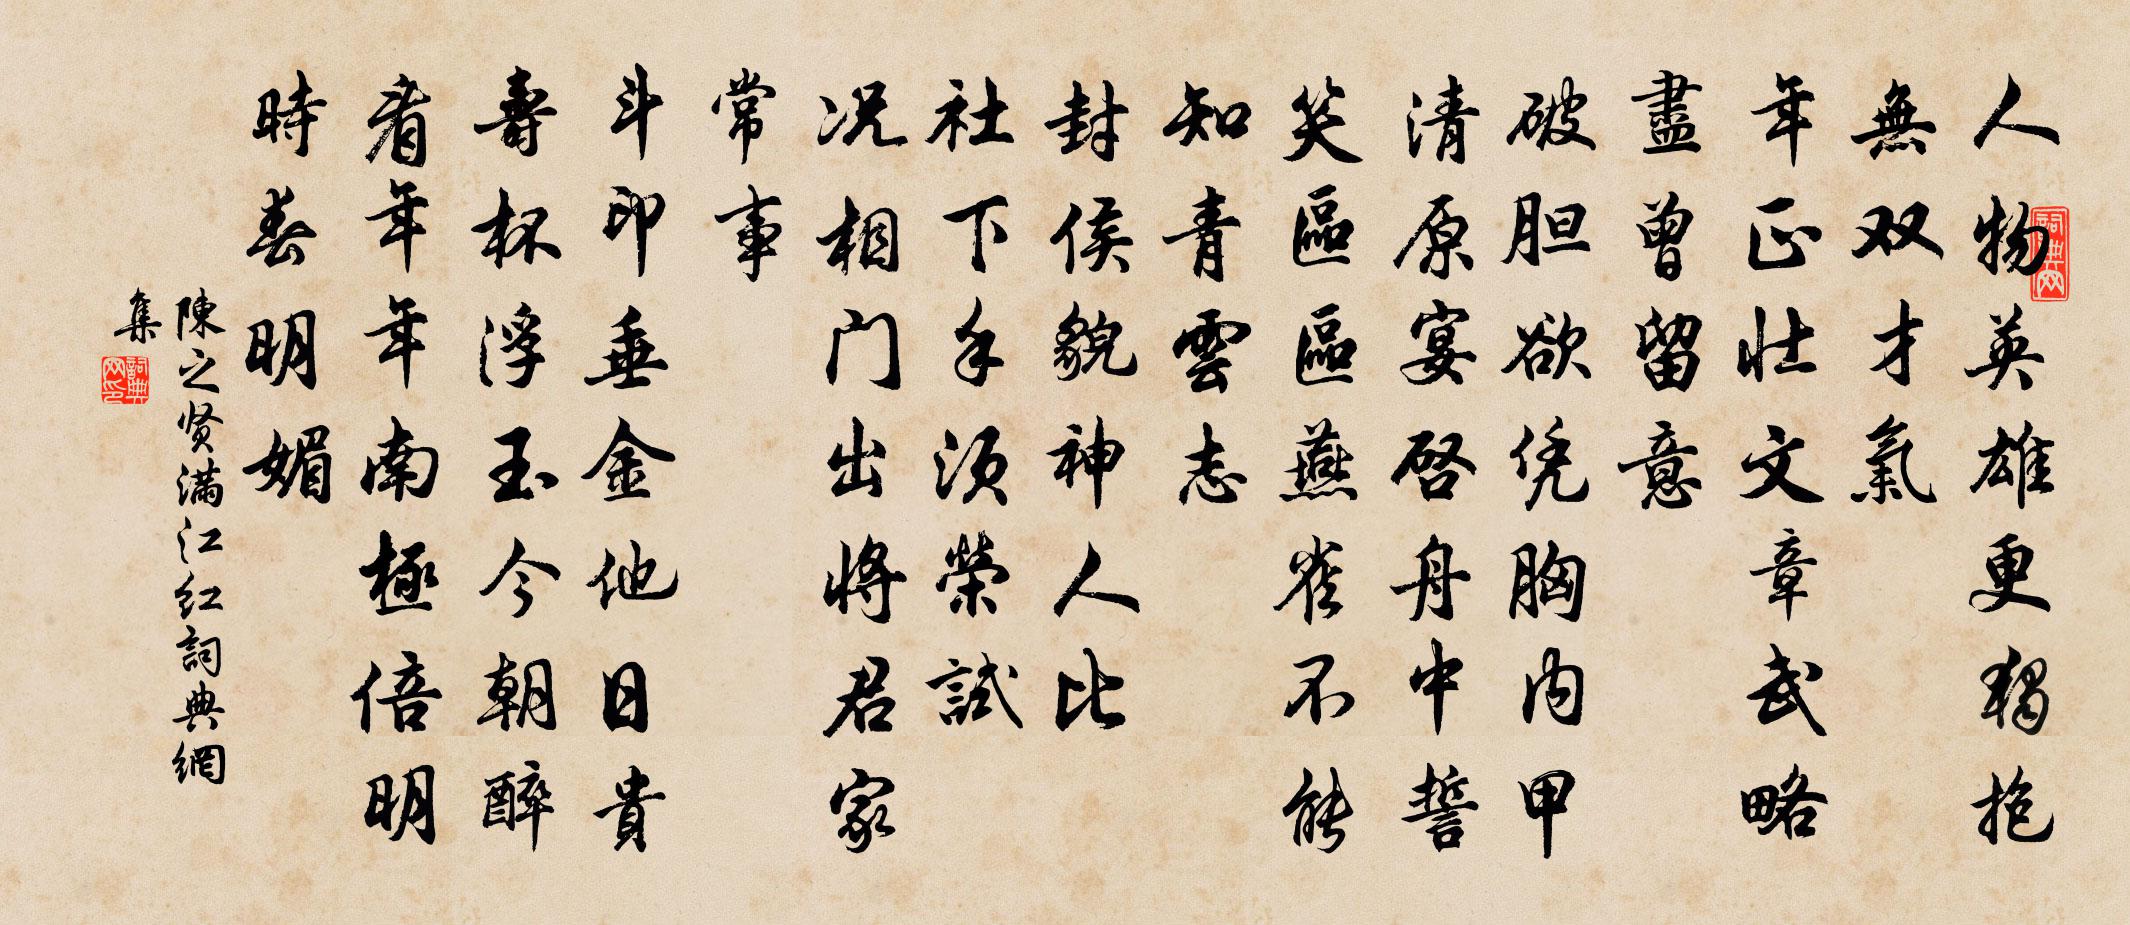 人物英雄更獨抱
無双才氣
年正壮文章武略
盡曾留意
破胆欲凭胸内甲
清原宴啓舟中誓
笑區區燕雀不能
知青雲志
封侯貌神人比
社下手須榮試
况相门出將君家
常事
斗印垂金他日貴
壽杯浮玉今朝醉
看年年南極倍明
時春明媚
陳之贤满江红詞典網
集
詞典网
詞典网印